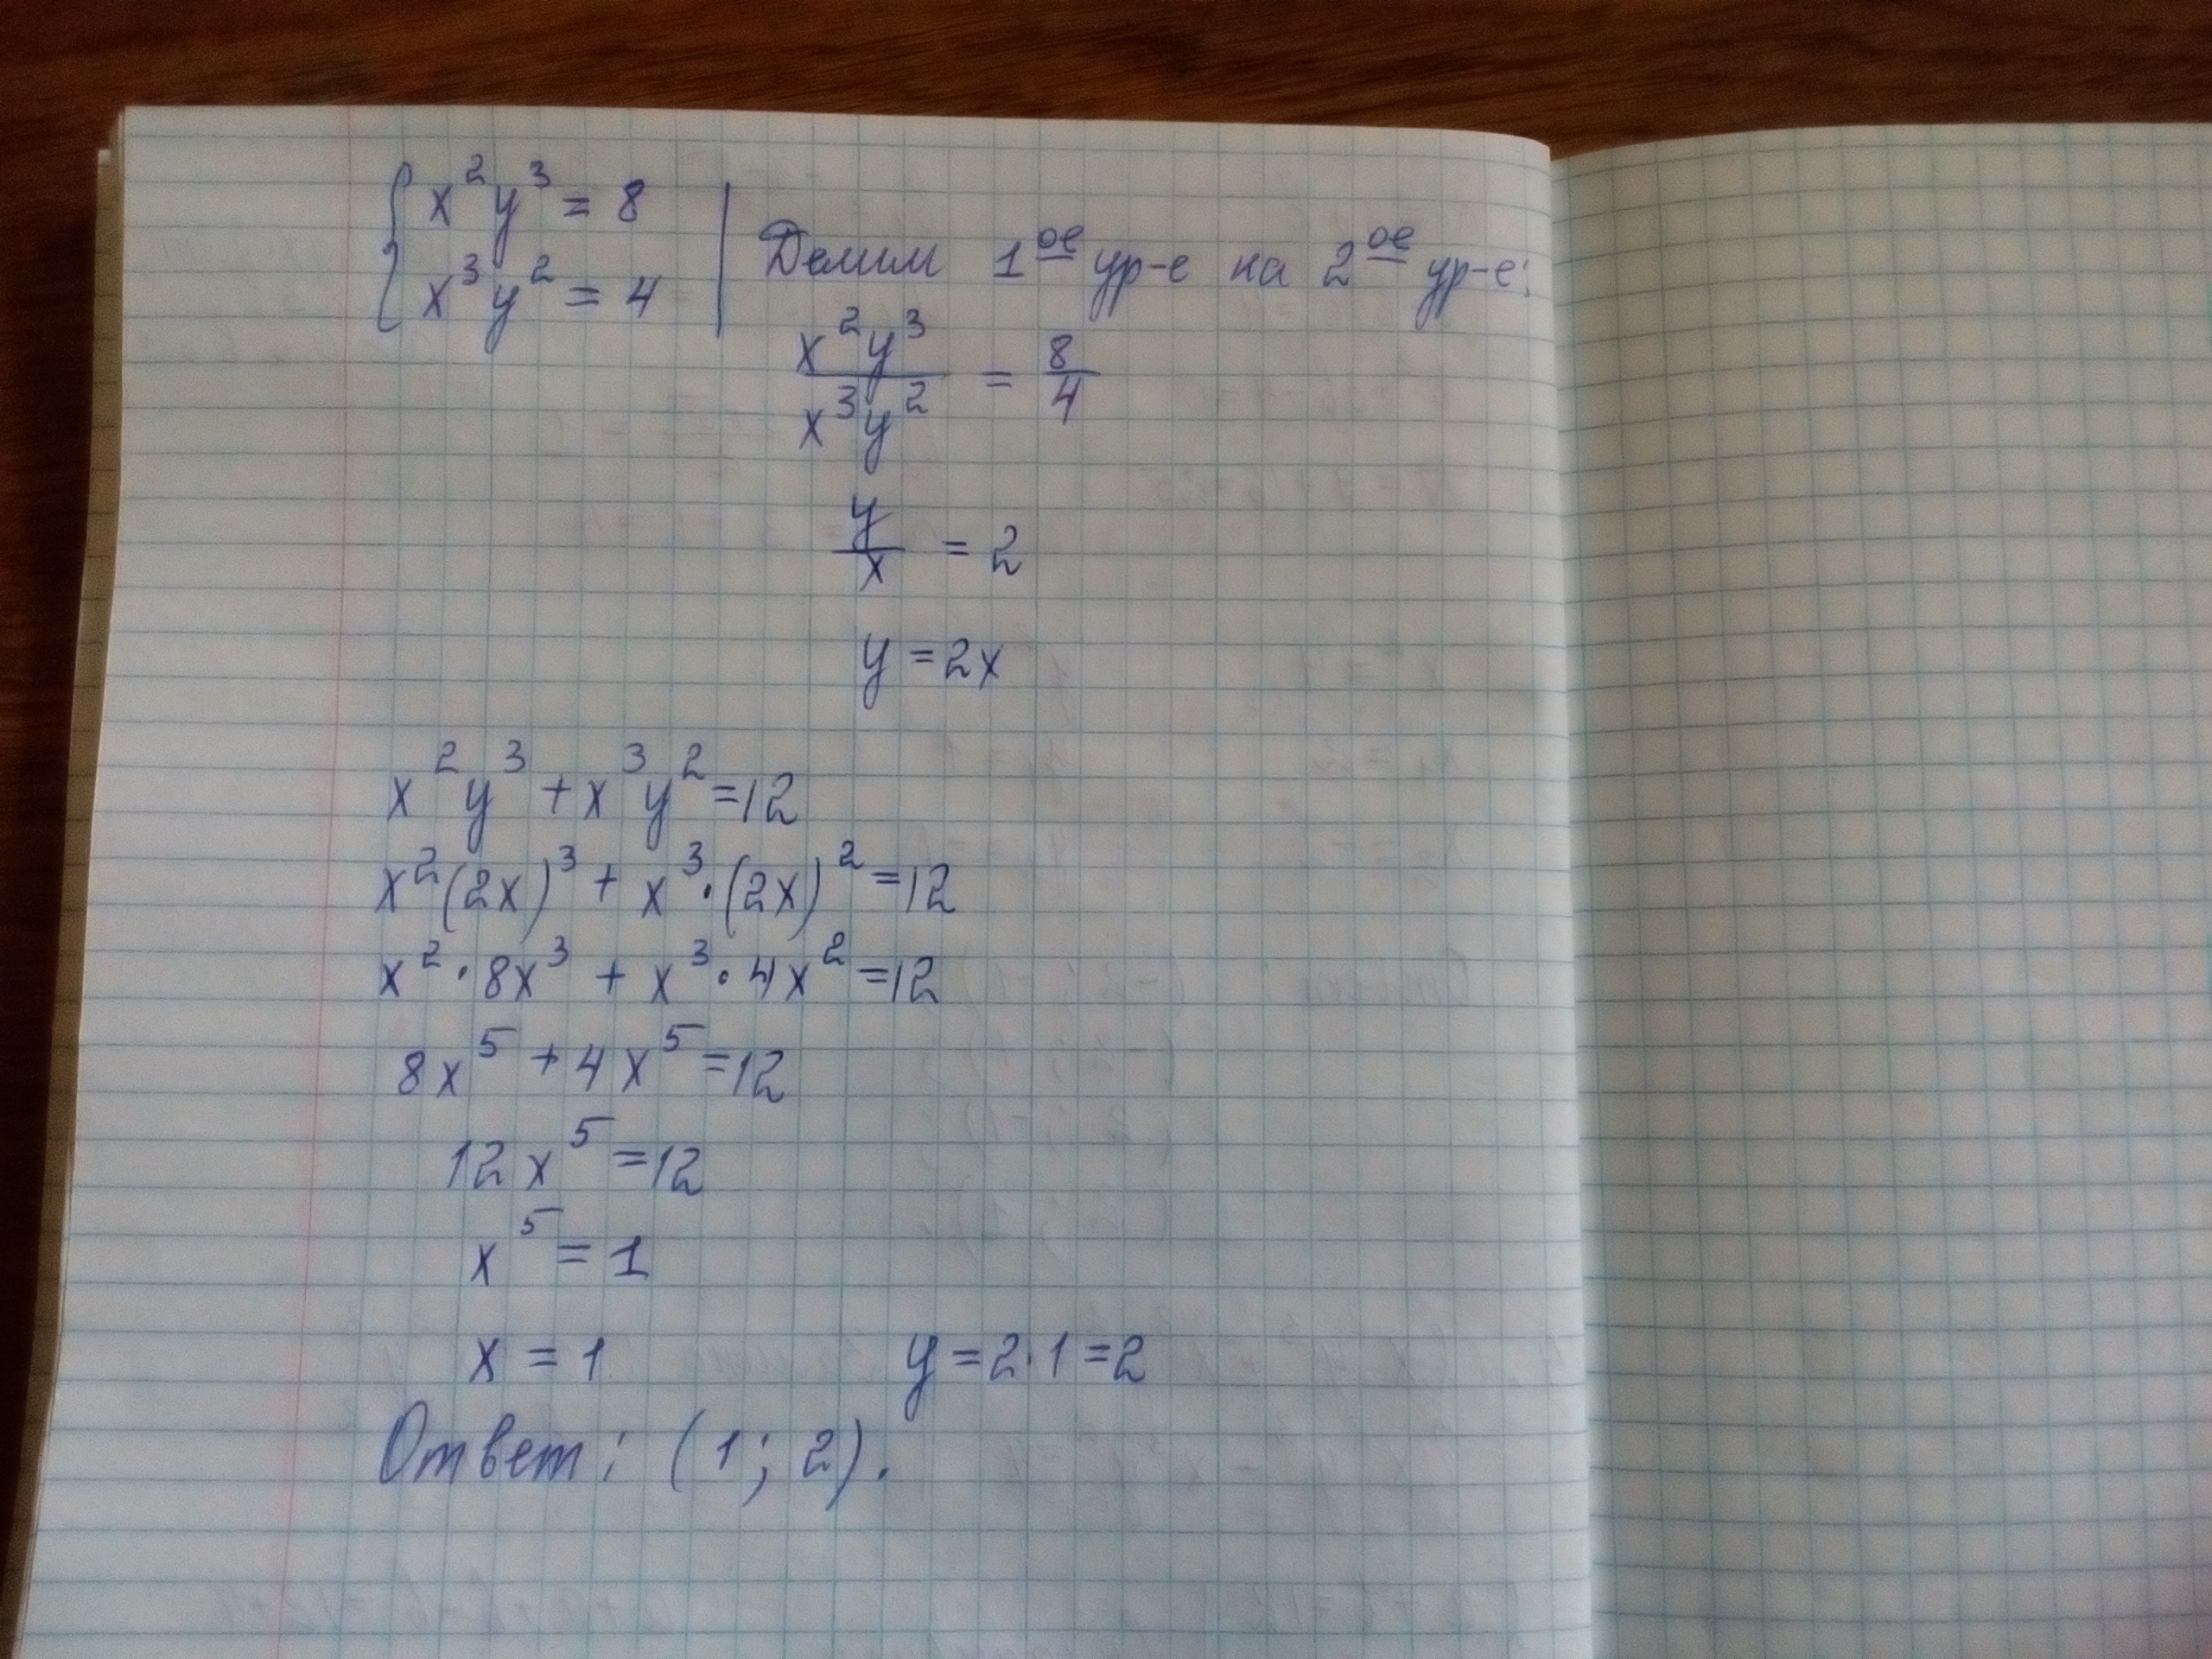 x²y³ = 8
x³y² = 4
Делим 1ое ур-е на 2ое ур-е:
x²y³ / x³y² = 8/4
y/x = 2
y = 2x
x²y³ + x³y² = 12
x²(2x)³ + x³·(2x)² = 12
x²·8x³ + x³·4x² = 12
8x⁵ + 4x⁵ = 12
12x⁵ = 12
x⁵ = 1
x = 1 y = 2·1 = 2
Ответ: (1; 2).